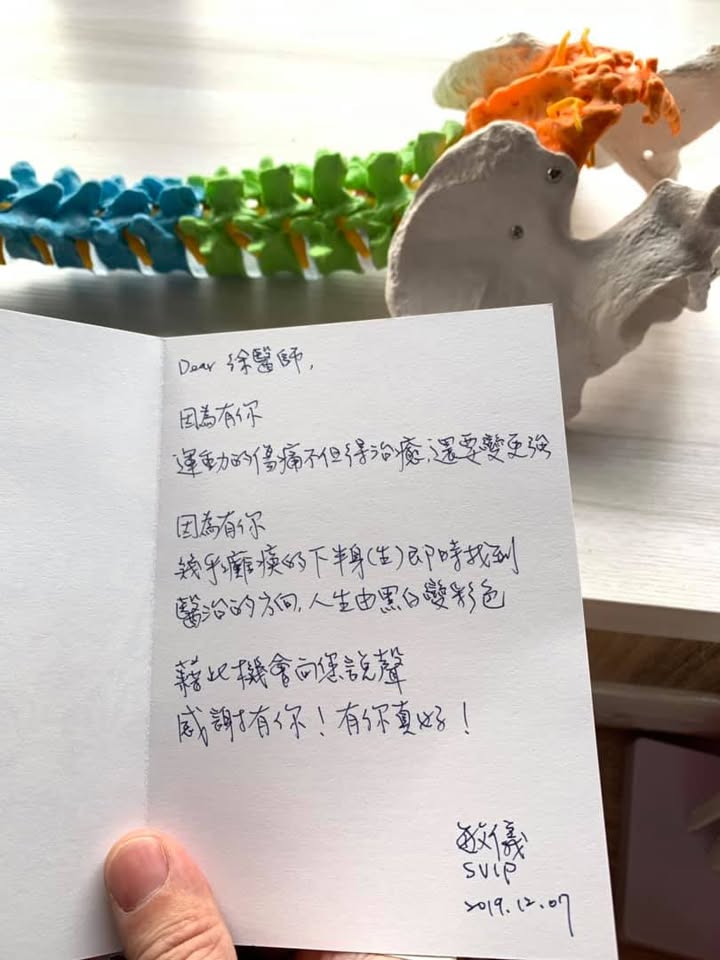 Dear 徐醫師,
因為有你
運動的傷痛不但得治癒,還要變更強
因為有你
幾乎癱瘓的下半身(生)即時找到
醫治的方向,人生由黑白變彩色
藉此機會向您說聲
感謝有你!有你真好!
敏儀
SVIP
2019.12.07